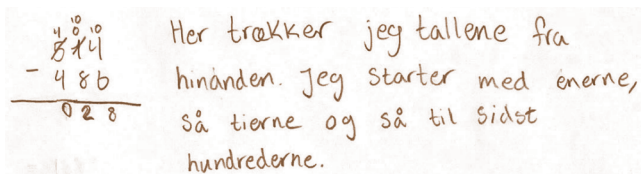 10
4 0 10
514
- 486
028
Her trækker jeg tallene fra
hinanden. Jeg starter med enerne,
så tierne og så til sidst
hundrederne.